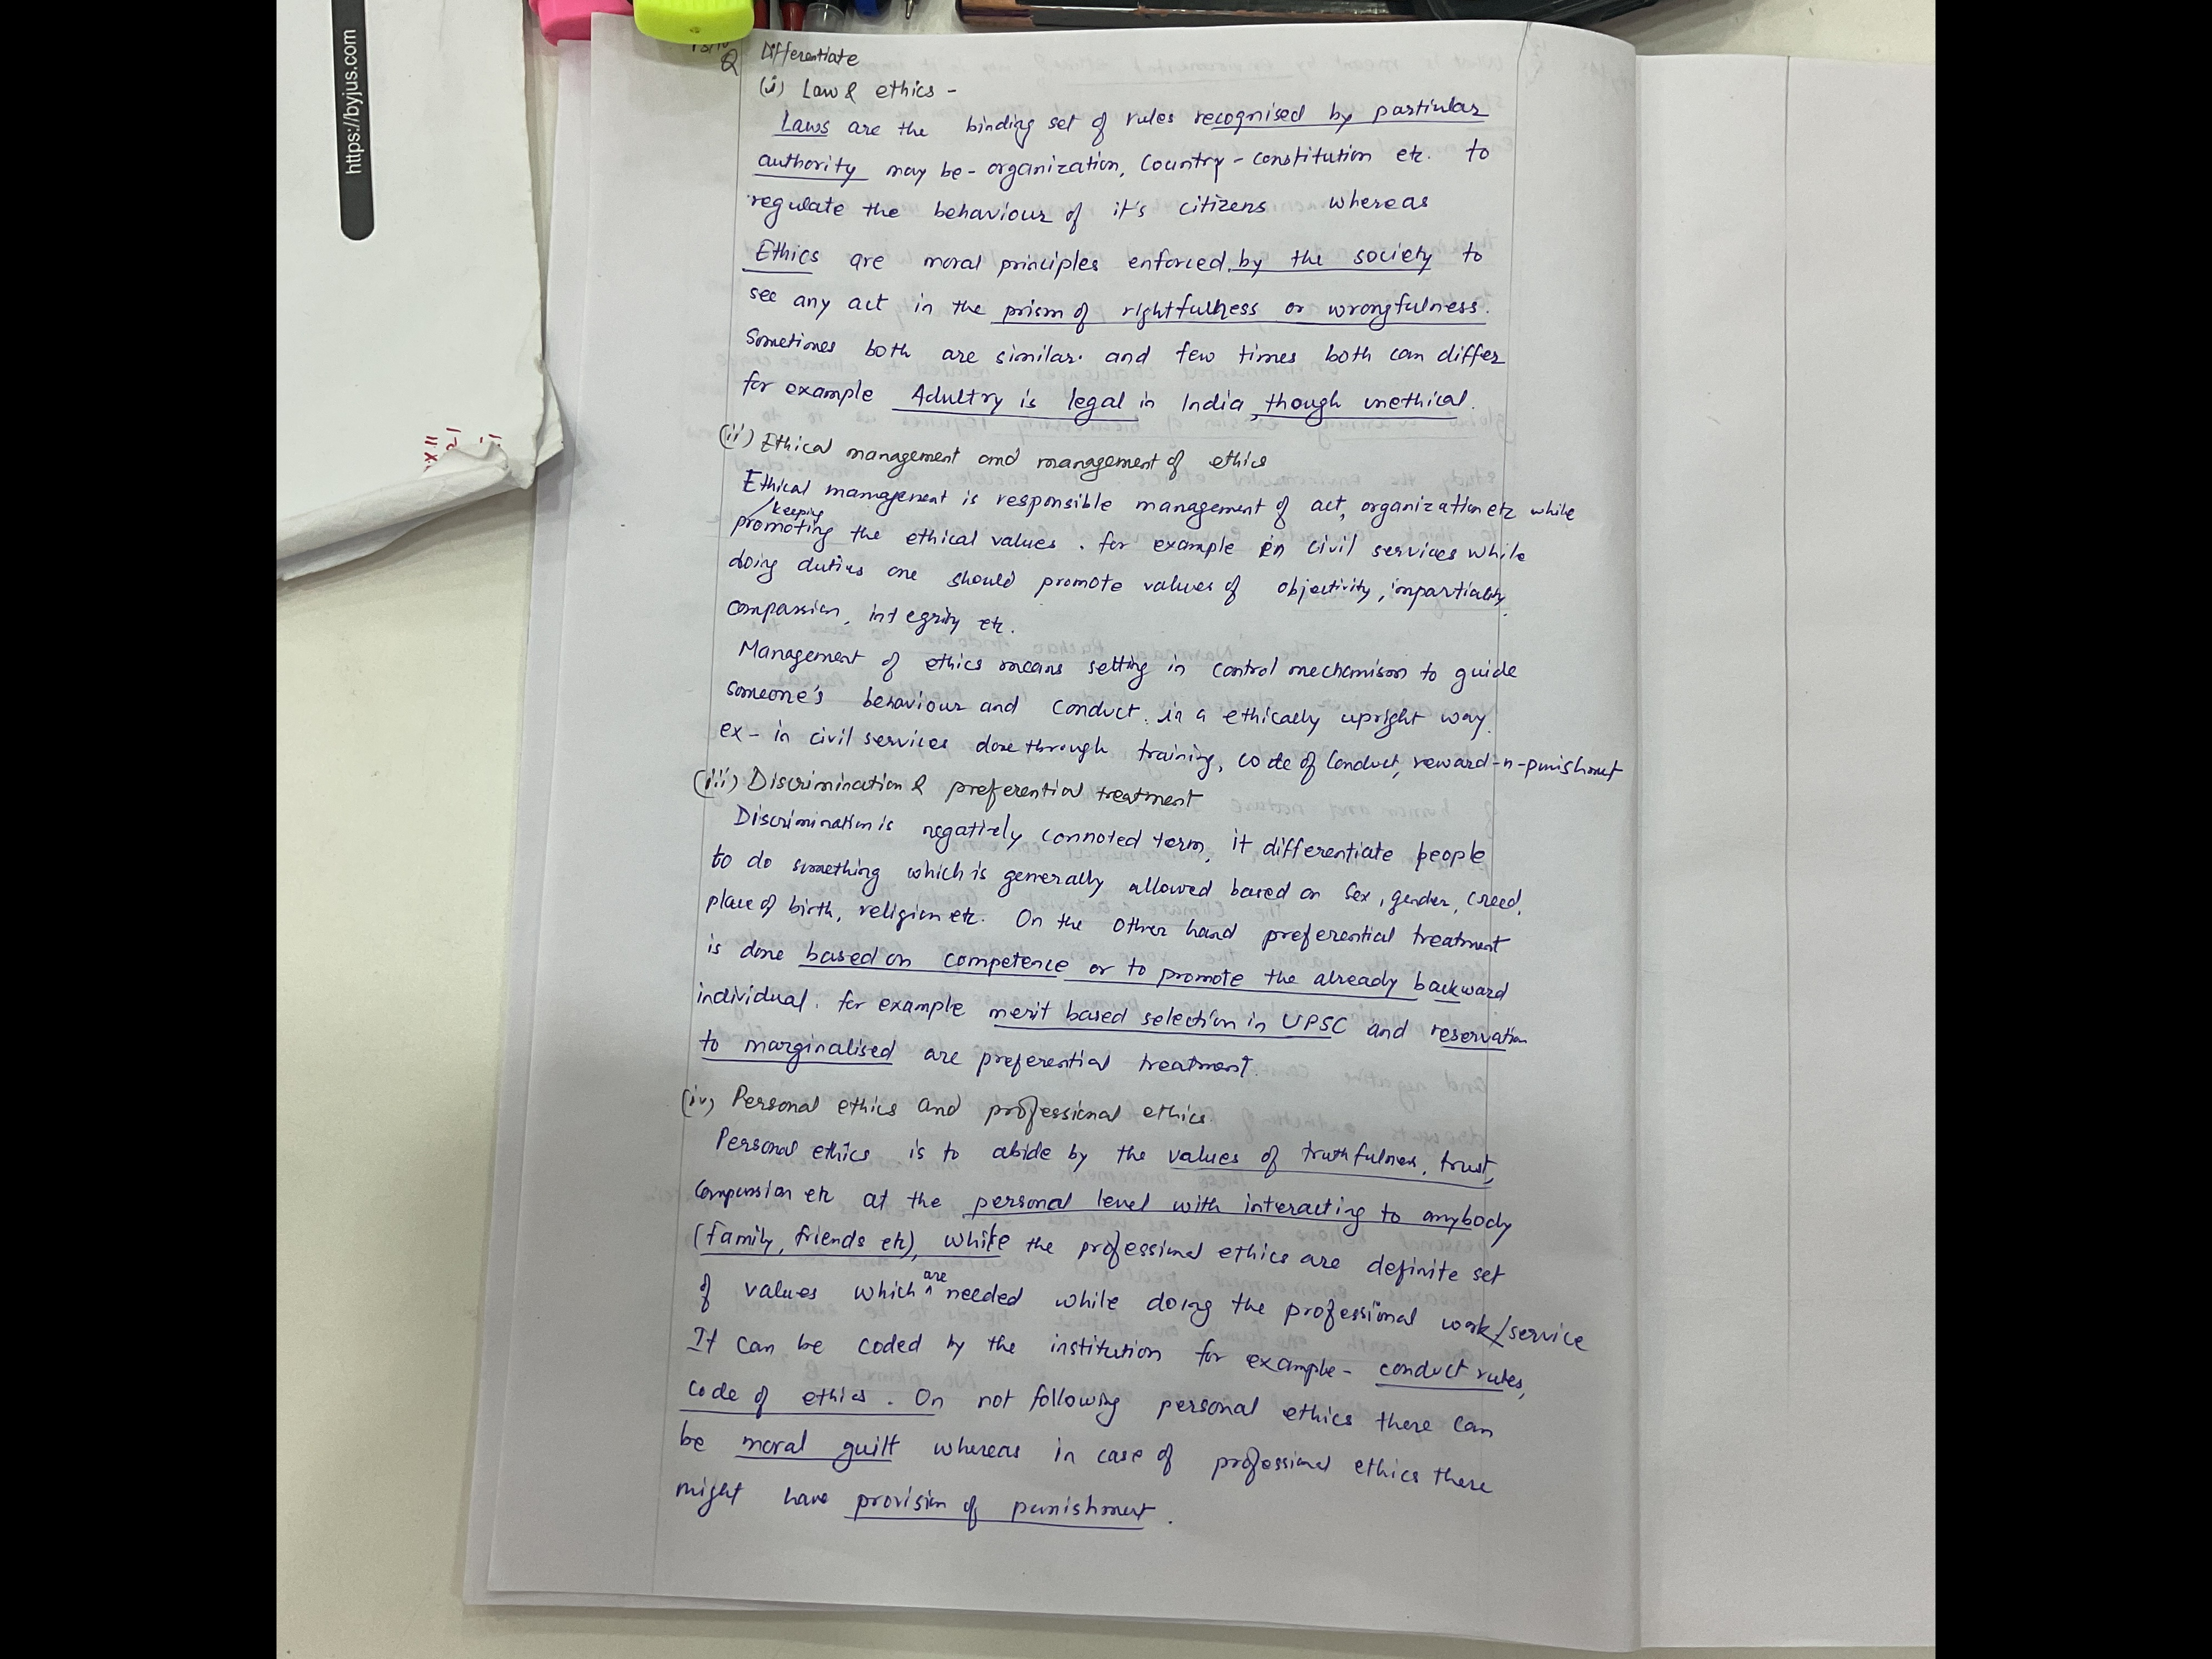 https://byjus.com
Q Differentiate
(i) Law & ethics -
Laws are the binding set of rules recognised by particular
authority may be - organization, Country - constitution etc. to
regulate the behaviour of it's citizens whereas
Ethics are moral principles enforced by the society to
see any act in the prism of rightfullness or wrongfulness.
Sometimes both are similar. and few times both can differ
for example Adultry is legal in India, though unethical.
(ii) Ethical management and management of ethics
Ethical management is responsible management of act, organization etc while
keeping
promoting the ethical values. for example in civil services while
doing duties one should promote values of objectivity, impartiality,
compassion, integrity etc.
Management of ethics means setting in control mechanism to guide
someone's behaviour and conduct in a ethically upright way.
ex - in civil services done through training, code of Conduct, reward-n-punishment
(iii) Discrimination & preferential treatment
Discrimination is negatively connoted term, it differentiate people
to do something which is generally allowed based on Sex, gender, creed,
place of birth, religion etc. On the other hand preferential treatment
is done based on competence or to promote the already backward
individual. for example merit based selection in UPSC and reservation
to marginalised are preferential treatment.
(iv) Personal ethics and professional ethics.
Personal ethics is to abide by the values of truthfulness, trust,
Compassion etc at the personal level with interacting to anybody
(family, friends etc), while the professional ethics are definite set
of values which are needed while doing the professional work/service
It can be coded by the institution for example - conduct rules,
code of ethics. On not following personal ethics there can
be moral guilt whereas in case of professional ethics there
might have provision of punishment.